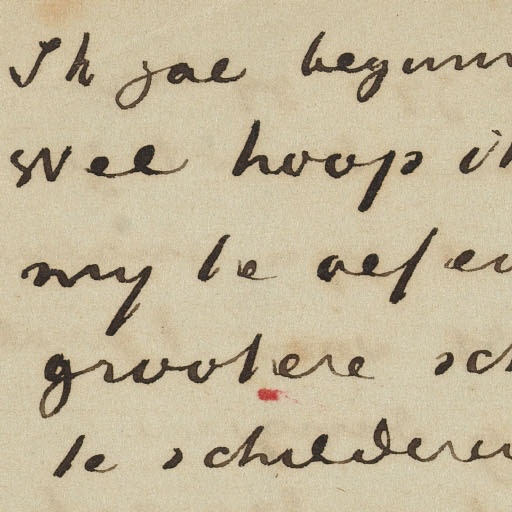 Ik zal beginn
Wel hoop ik
my te oefen
grootere sch
te schilderen